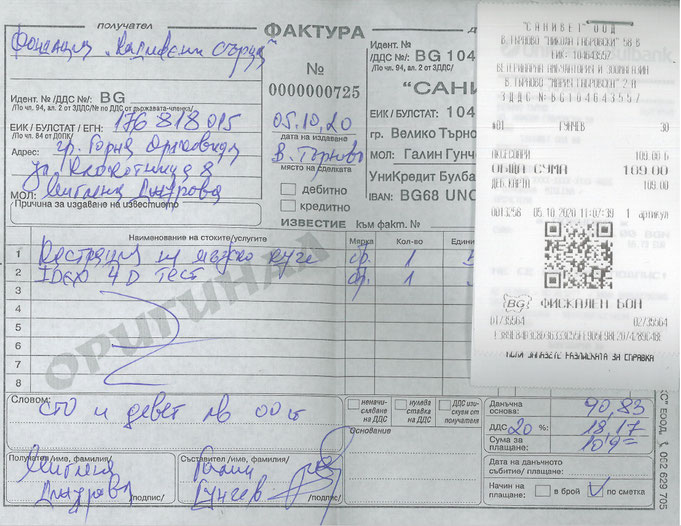 получател
ФАКТУРА
Фондация "
Идент. № /ДДС №/: BG
/По чл. 94, ал. 2 от ЗДДС/№ по ДДС от държавата-членка/
ЕИК / БУЛСТАТ / ЕГН: 176818015
/По чл. 84 от ДОПК/
Адрес: гр. Горна Оряховица
ул. 8
МОЛ:
Причина за издаване на известието
№
0000000725
05.10.20
дата на издаване
В. Търново
място на сделката
дебитно
кредитно
ИЗВЕСТИЕ към факт. №
Идент. №
/ДДС №/: BG 104
/По чл. 94, ал. 2 от ЗДДС/
"САНИ
ЕИК / БУЛСТАТ: 104
гр. Велико Търно
МОЛ: Галин Гунч
УниКредит Булба
IBAN: BG68 UNC
"САНИВЕТ" ООД
В.ТЪРНОВО "НИКОЛА ГАБРОВСКИ" 58 В
ЕИК: 104643557
ВЕТЕРИНАРНА АМБУЛАТОРИЯ И ЗООМАГАЗИН
В.ТЪРНОВО "МАРИЯ ГАБРОВСКА" 2 В
ЗДДС № BG104643557
#01 ГУНЧЕВ 30
АКСЕСОАРИ 109.00 Б
ОБЩА СУМА 109.00
ДЕБ.КАРТА 109.00
0013258 05.10.2020 11:07:39 1 артикул
BG ФИСКАЛЕН БОН
Наименование на стоките/услугите Мярка Кол-во Едини
1 Кастрация на мъжко куче бр. 1
2 IDEXX 4D тест бр. 1
3
4
5
6
7
8
ОРИГИНАЛ
Словом: сто и девет лв 00 ст
неначисляване на ДДС
нулева ставка на ДДС
ДДС изискуем от получателя
Основание
Данъчна основа: 90,83
ДДС 20 %: 18,17
Сума за плащане: 109=
Дата на данъчното събитие/ плащане:
Начин на плащане: в брой по сметка
Получател /име, фамилия/
/подпис/
Съставител /име, фамилия/
Галин
Гунчев
/подпис/
ЕООД, 062 629 705